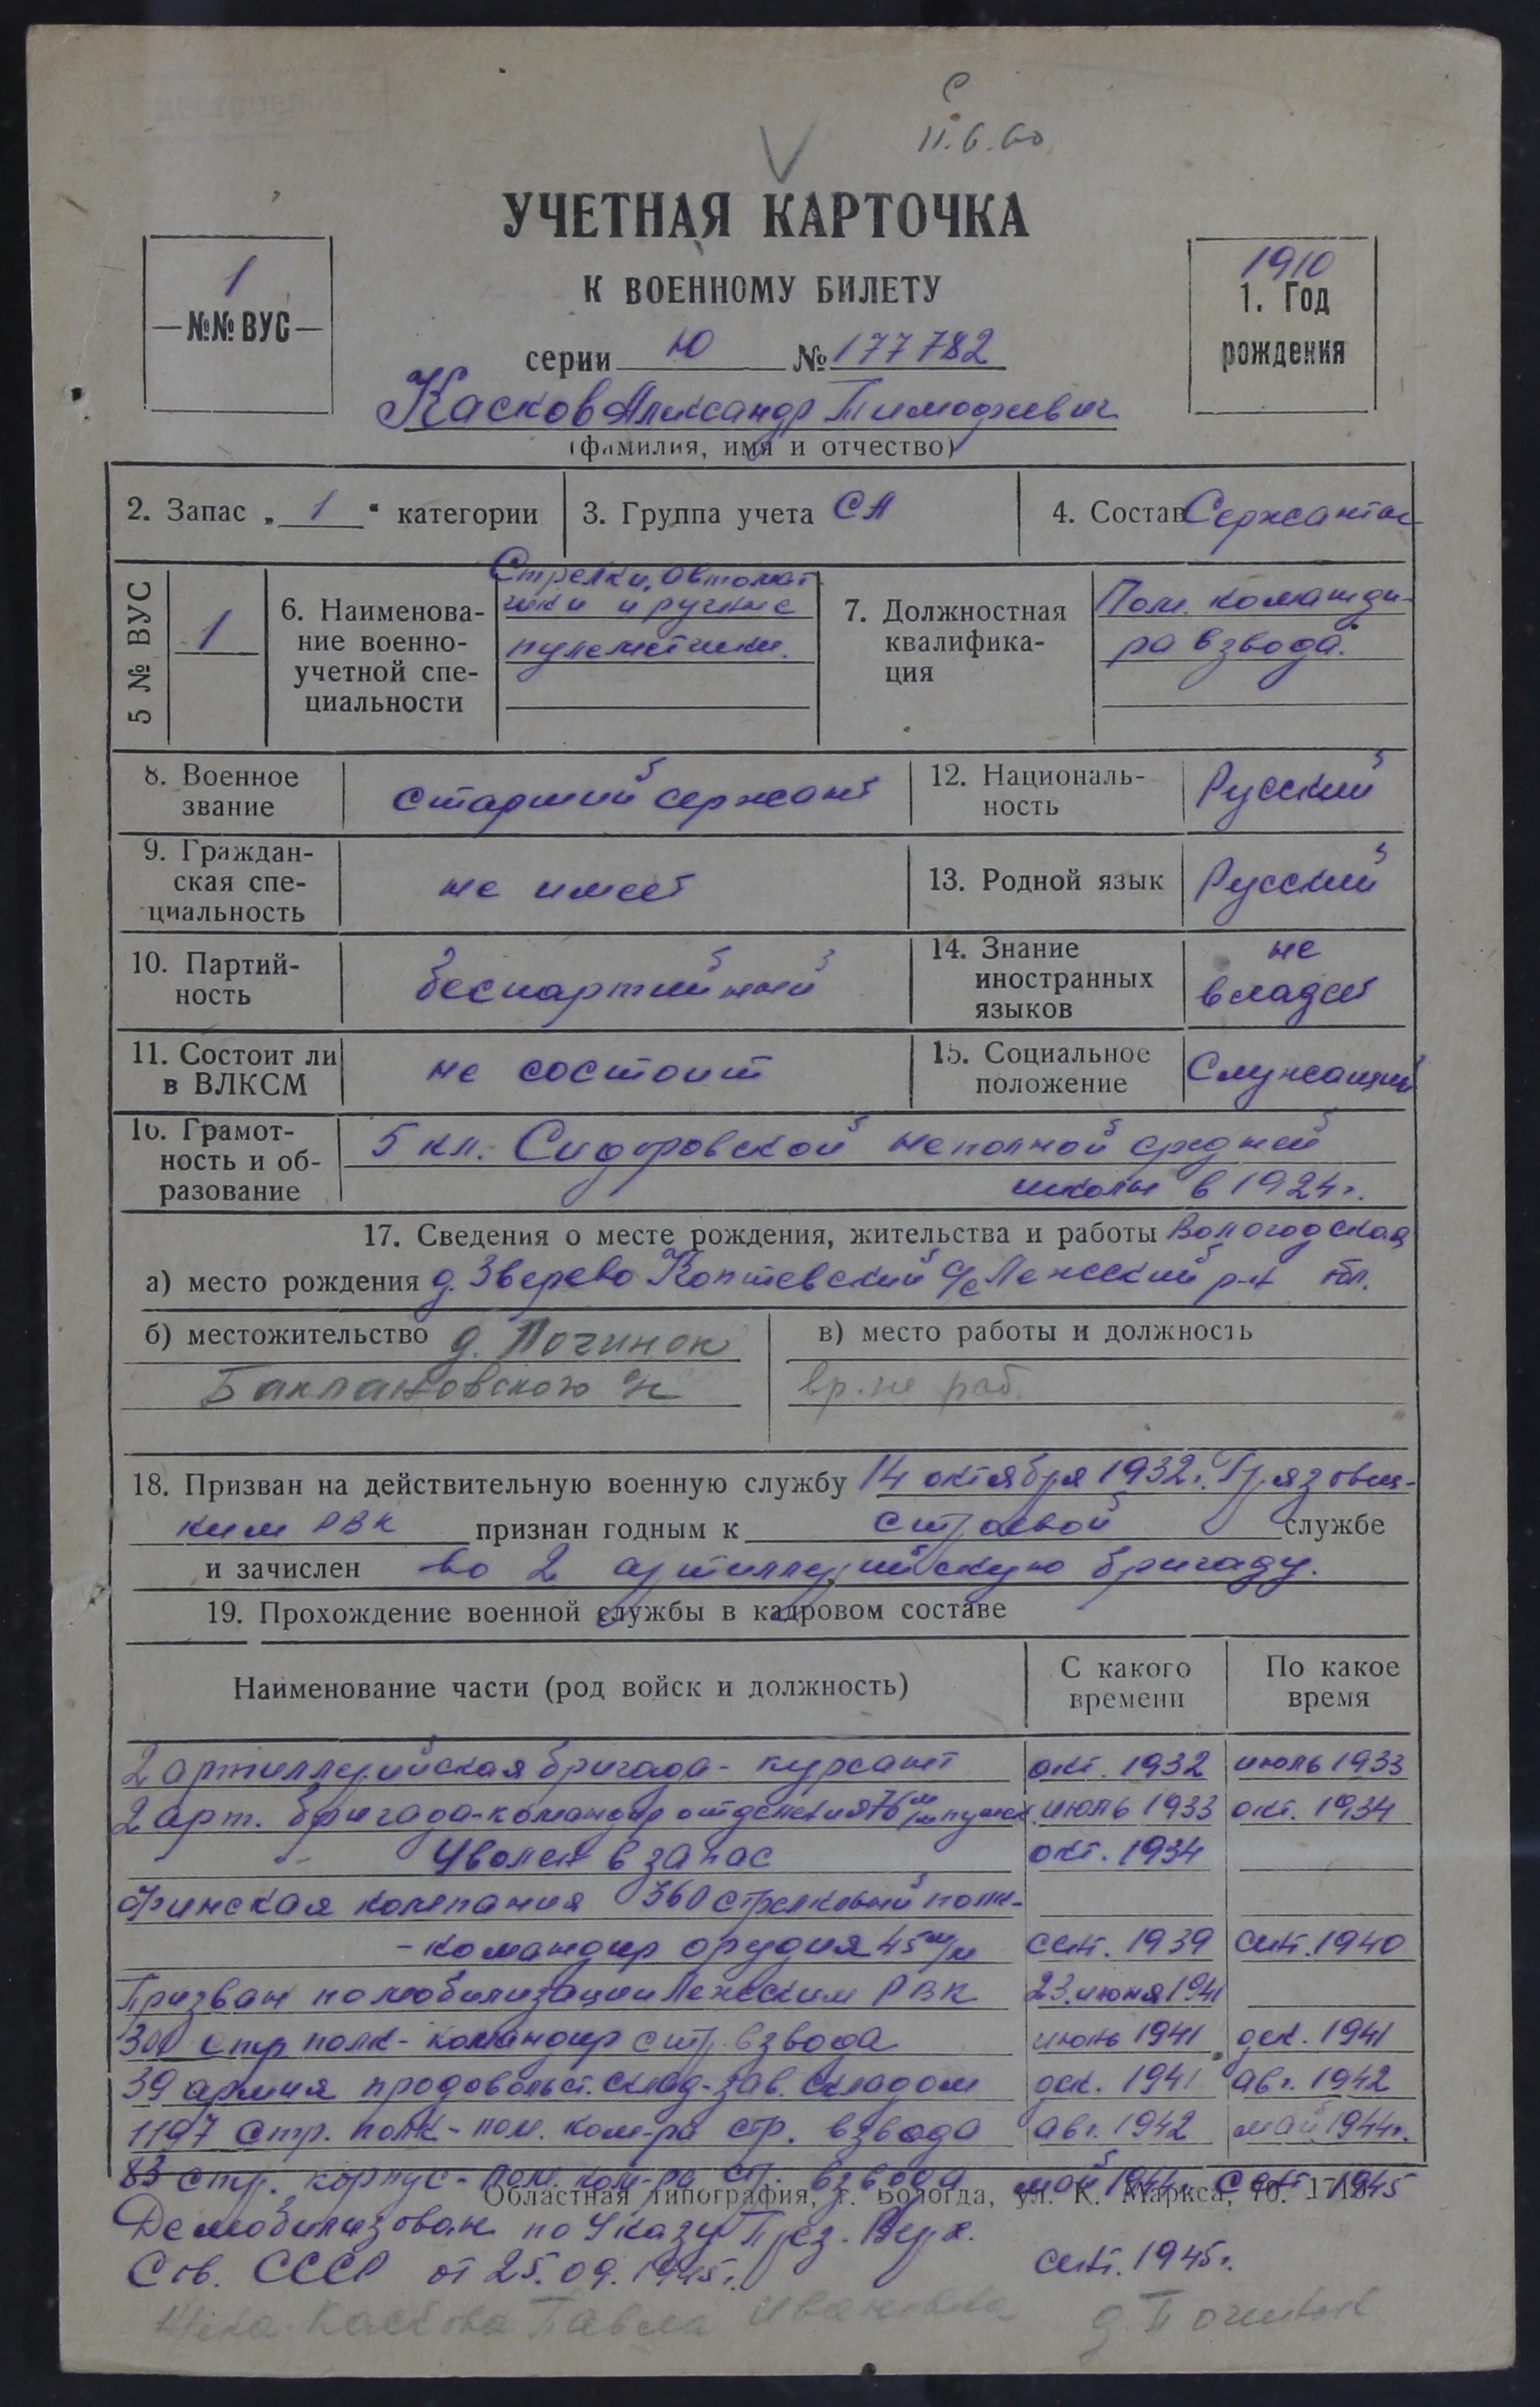 С
11.6.60
V
УЧЕТНАЯ КАРТОЧКА
К ВОЕННОМУ БИЛЕТУ
1
№№ ВУС
1910
1. Год
рождения
серии Ю № 177782
Касков Александр Тимофеевич
(фамилия, имя и отчество)
2. Запас „ 1 “ категории
3. Группа учета СА
4. Состав Сержантск
5 № ВУС
1
6. Наименова-
ние военно-
учетной спе-
циальности
Стрелки, автомат
чики и ручные
пулеметчики.
7. Должностная
квалифика-
ция
Пом. команди-
ра взвода.
8. Военное
звание
старший сержант
12. Националь-
ность
Русский
9. Граждан-
ская спе-
циальность
не имеет
13. Родной язык
Русский
10. Партий-
ность
беспартийный
14. Знание
иностранных
языков
не
владеет
11. Состоит ли
в ВЛКСМ
не состоит
15. Социальное
положение
Служащий
16. Грамот-
ность и об-
разование
5 кл. Сидоровской неполной средней
школы в 1924 г.
17. Сведения о месте рождения, жительства и работы Вологодская
а) место рождения д. Зверево Коптевский с/с Лежский р-н обл.
б) местожительство д. Починок
Баклановского с/с
в) место работы и должность
вр. не раб.
18. Призван на действительную военную службу 14 октября 1932 г. Грязовец-
ким РВК признан годным к строевой службе
и зачислен во 2 артиллерийскую бригаду.
19. Прохождение военной службы в кадровом составе
Наименование части (род войск и должность)
С какого
времени
По какое
время
2 артиллерийская бригада - курсант окт. 1932 июль 1933
2 арт. бригада - командир отделения 76 м/м пушек июль 1933 окт. 1934
Уволен в запас окт. 1934
Финская компания 360 стрелковый полк-
- командир орудия 45 м/м сент. 1939 сент. 1940
Призван по мобилизации Лежским РВК 23. июня 1941
300 стр полк - командир стр. взвода июль 1941 дек. 1941
39 армия продовольст. склад - зав. складом дек. 1941 авг. 1942
1197 стр. полк - пом. ком-ра стр. взвода авг. 1942 май 1944 г.
83 стр. корпус - пом. ком-ра стр. взвода май 1944 г. сент 1945
Областная типография, г. Вологда, ул. К. Маркса, 70.
Демобилизован по Указу През. Верх.
Сов. СССР от 25.09.1945 г. сент. 1945 г.
Жена Каскова Павла Ивановна д. Починок